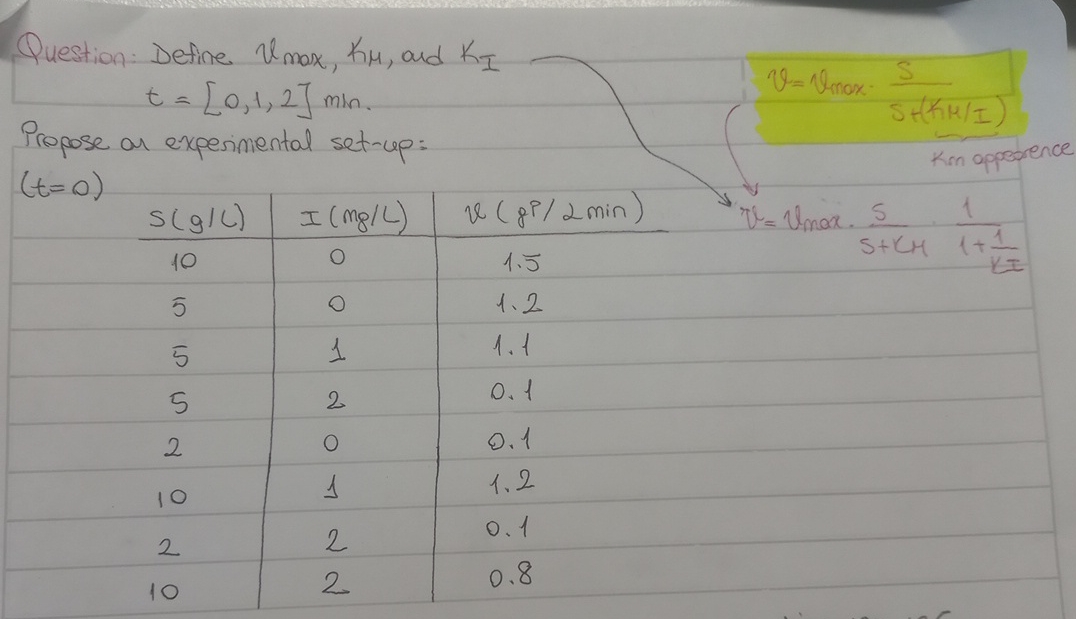 Question: Define Vmax, KM, and KI
t = [0,1,2] min.
Propose an experimental set-up:
(t=0)
S(g/L) I(mg/L) v(gP/2min)
10 0 1.5
5 0 1.2
5 1 1.1
5 2 0.1
2 0 0.1
10 1 1.2
2 2 0.1
10 2 0.8
v = vmax. S / S+(KM/I)
Km appearence
v = vmax. S / S+KM . 1 / 1+1/KI